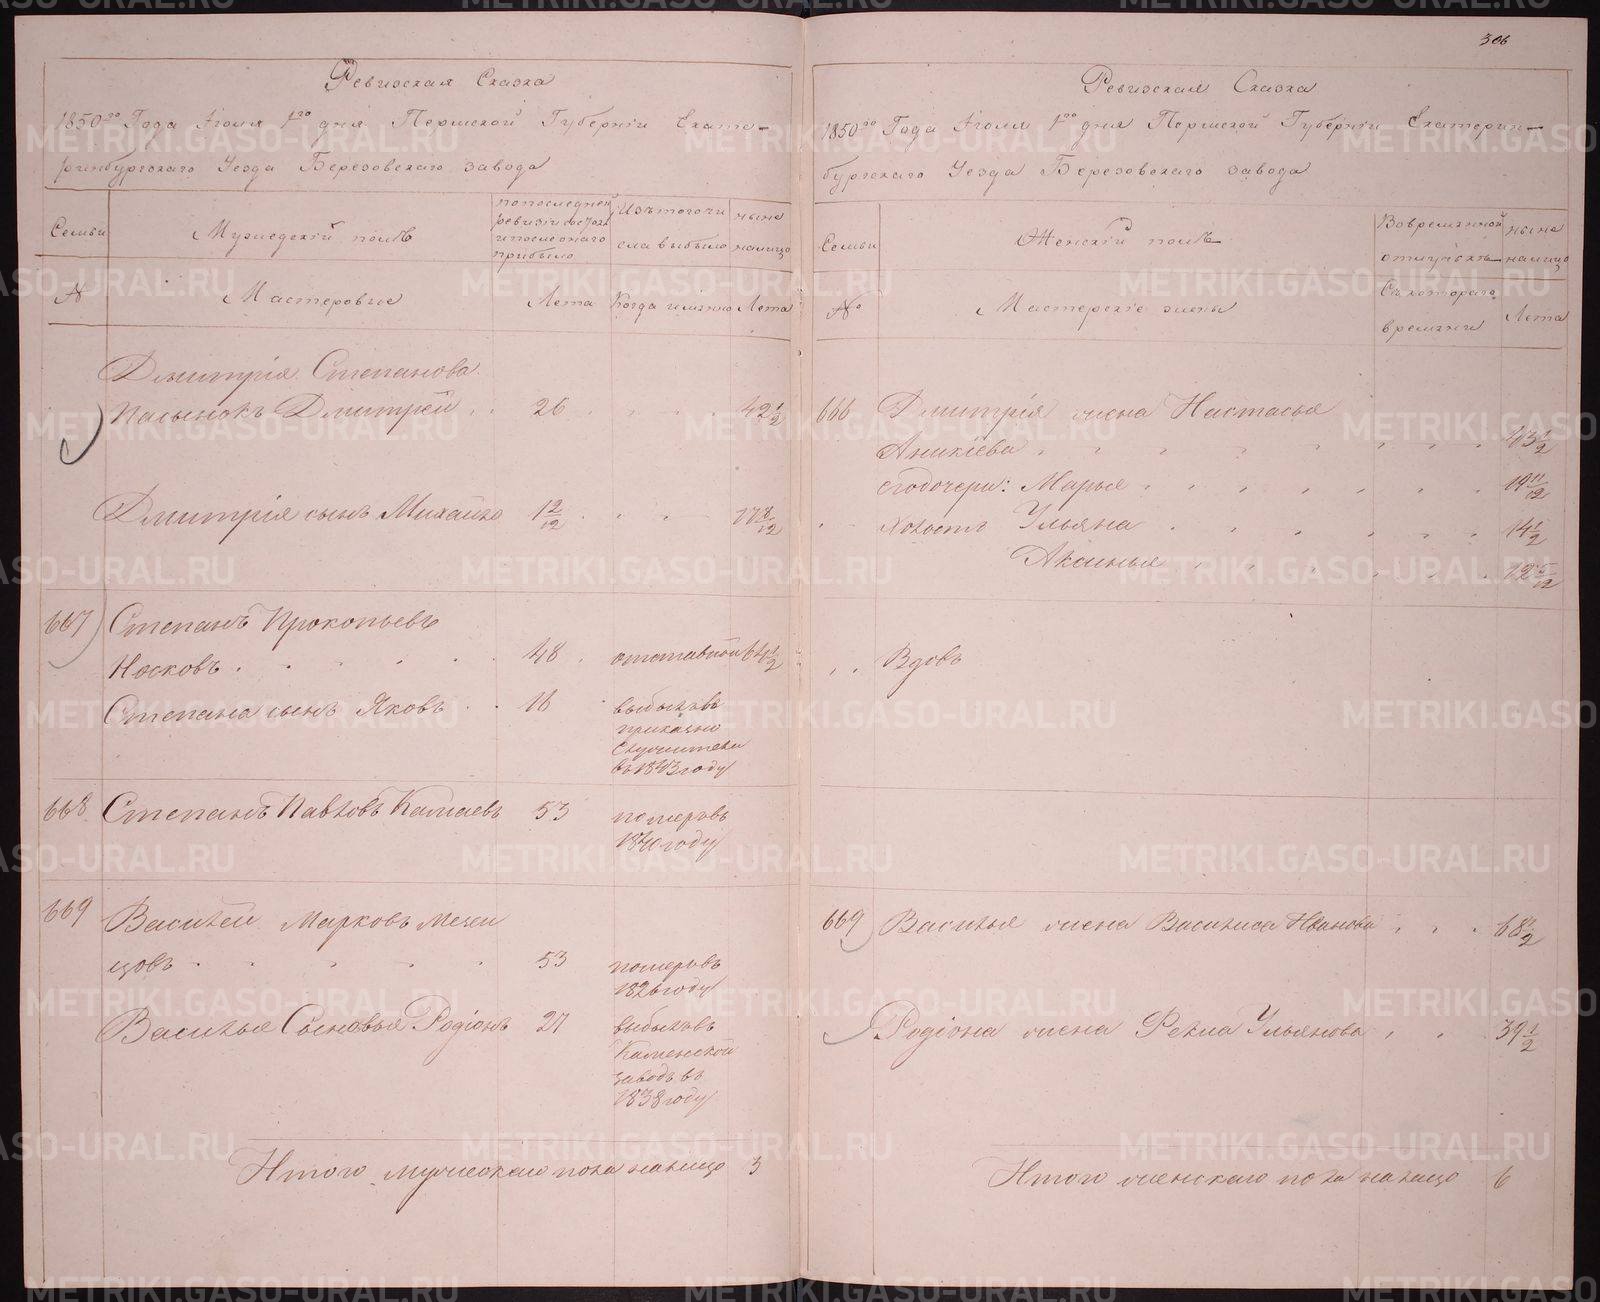 Ревизская Сказка
1850го Года Июля 1го дня Пермской Губерніи Екате-
ринбургскаго Уезда Березовскаго завода
Семьи
Мужеский полъ
по последней
ревизіи состояло
и после онаго
прибыло
Изъ того чи
сла выбыло
ныне
налицо
№
Мастеровые
Лета
Когда именно
Лета
Дмитрія Степанова
Пасынокъ Дмитрей 26 42 1/2
Дмитрія сынъ Михайло 12/12 17 8/12
667 Степанъ Прокопьевъ
Носковъ 48 отставной 64 1/2
Степана сынъ Яковъ 16 выбылъ въ
приказно
служители
въ 1843 году
668 Степанъ Павловъ Камаевъ 53 померъ въ
1840 году
669 Василей Марковъ Мехи
цовъ 53 померъ въ
1826 году
Василья Сыновья Родіонъ 27 выбылъ въ
Каменской
заводъ въ
1838 году
Итого мужескаго пола налицо 3
306
Ревизская Сказка
1850го Года Июля 1го дня Пермской Губерніи Екатерин-
бургскаго Уезда Березовскаго завода
Семьи
Женскій полъ
Во временной
отлучкѣ
ныне
налицо
№
Мастерскіе жены
Съ котораго
времени
Лета
666 Дмитрія жена Настасья
Аникіева 43 1/2
его дочери: Марья 19 11/12
Ульяна 14 1/2
Аксинья 12 5/12
Вдовъ
669 Василья жена Василиса Иванова 68 1/2
Родіона жена Фекла Ульянова 39 1/2
Итого женскаго пола налицо 6
METRIKI.GASO-URAL.RU